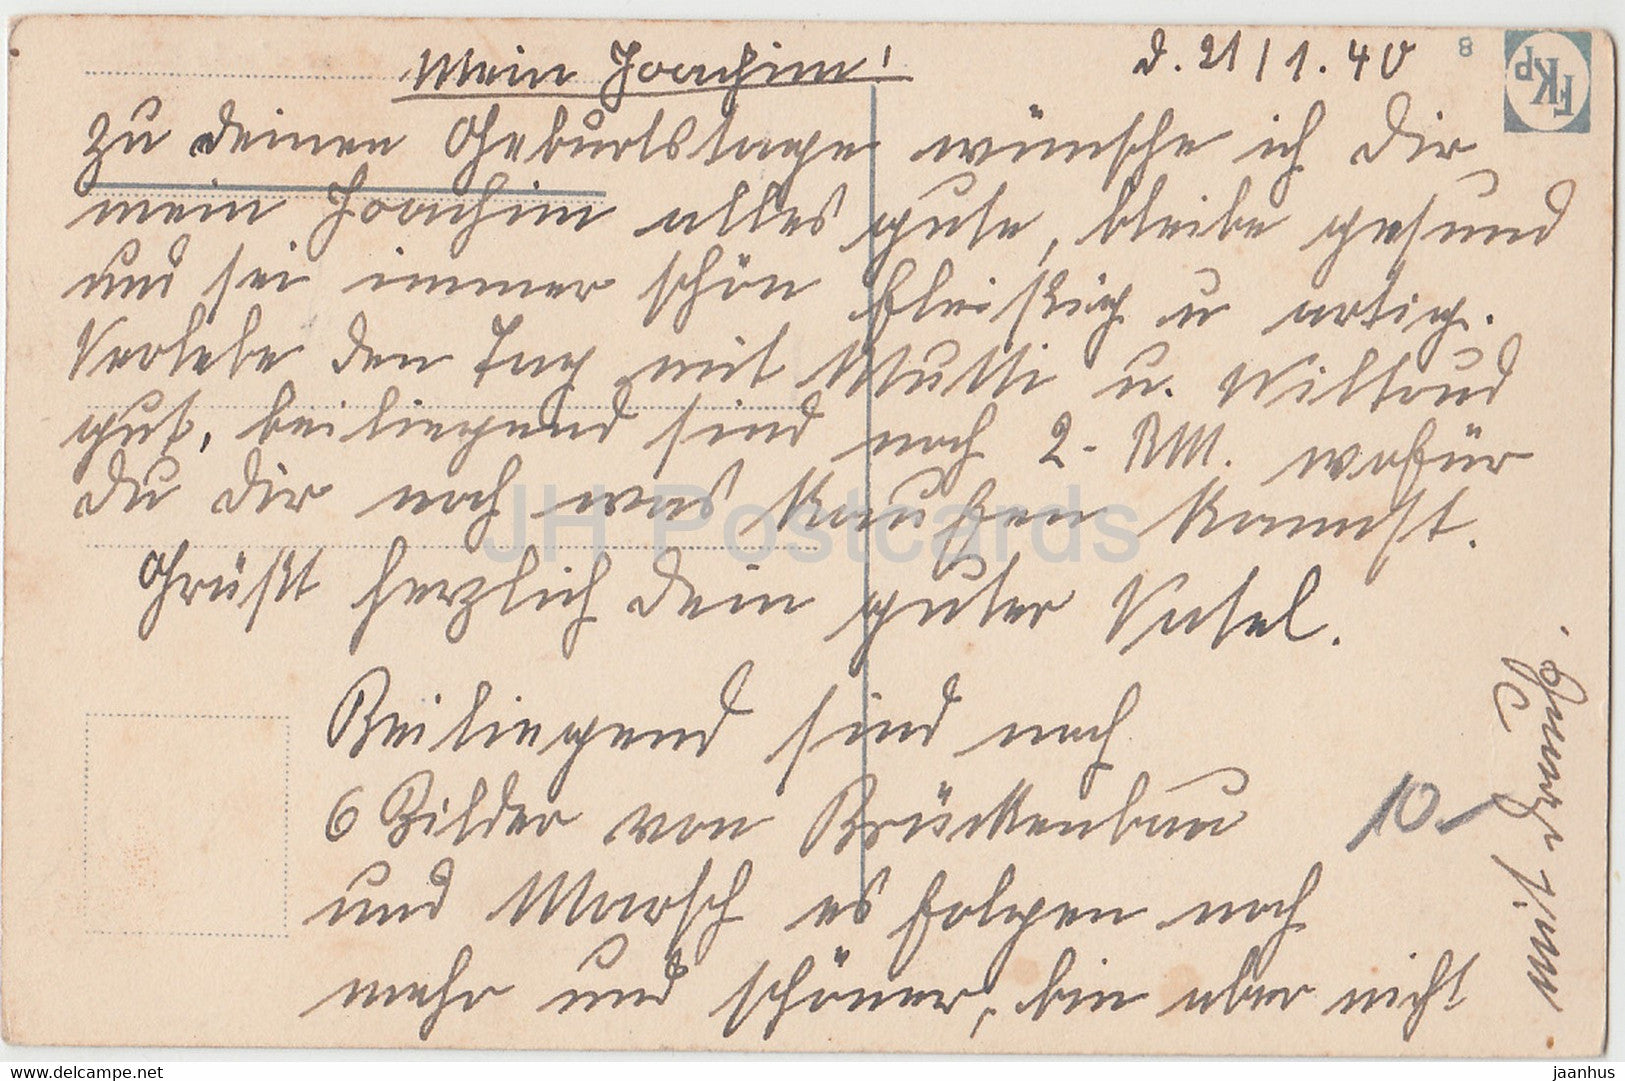 d. 21/1.40
8
FKp
Mein Joachim!
Zu deinen Geburtstage wünsche ich dir
mein Joachim alles gute, bleibe gesund
und sei immer schön fleißig u artig.
Verlebe den Tag mit Mutti u. Wiltrud
gut, beiliegend sind noch 2- RM. wofür
du dir noch was kaufen kannst.
Grüßt herzlich dein guter Vatel.
Beiliegend sind noch
6 Bilder von Brückenbau
und Marsch es folgen noch
mehr und schöner, bin aber nicht
mit drauf.
10-
JH Postcards
hippostcard.com
jaanhus